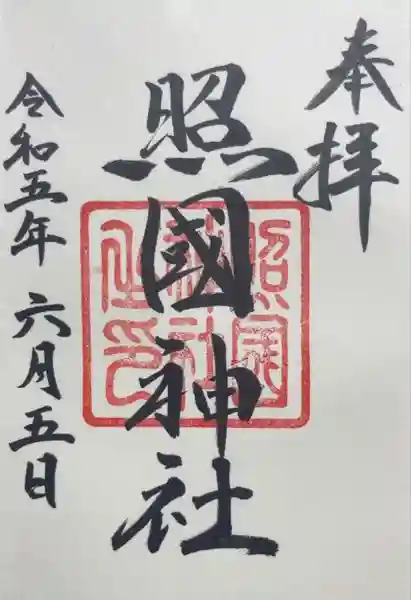 奉拝
照國神社
照国神社之印
令和五年六月五日